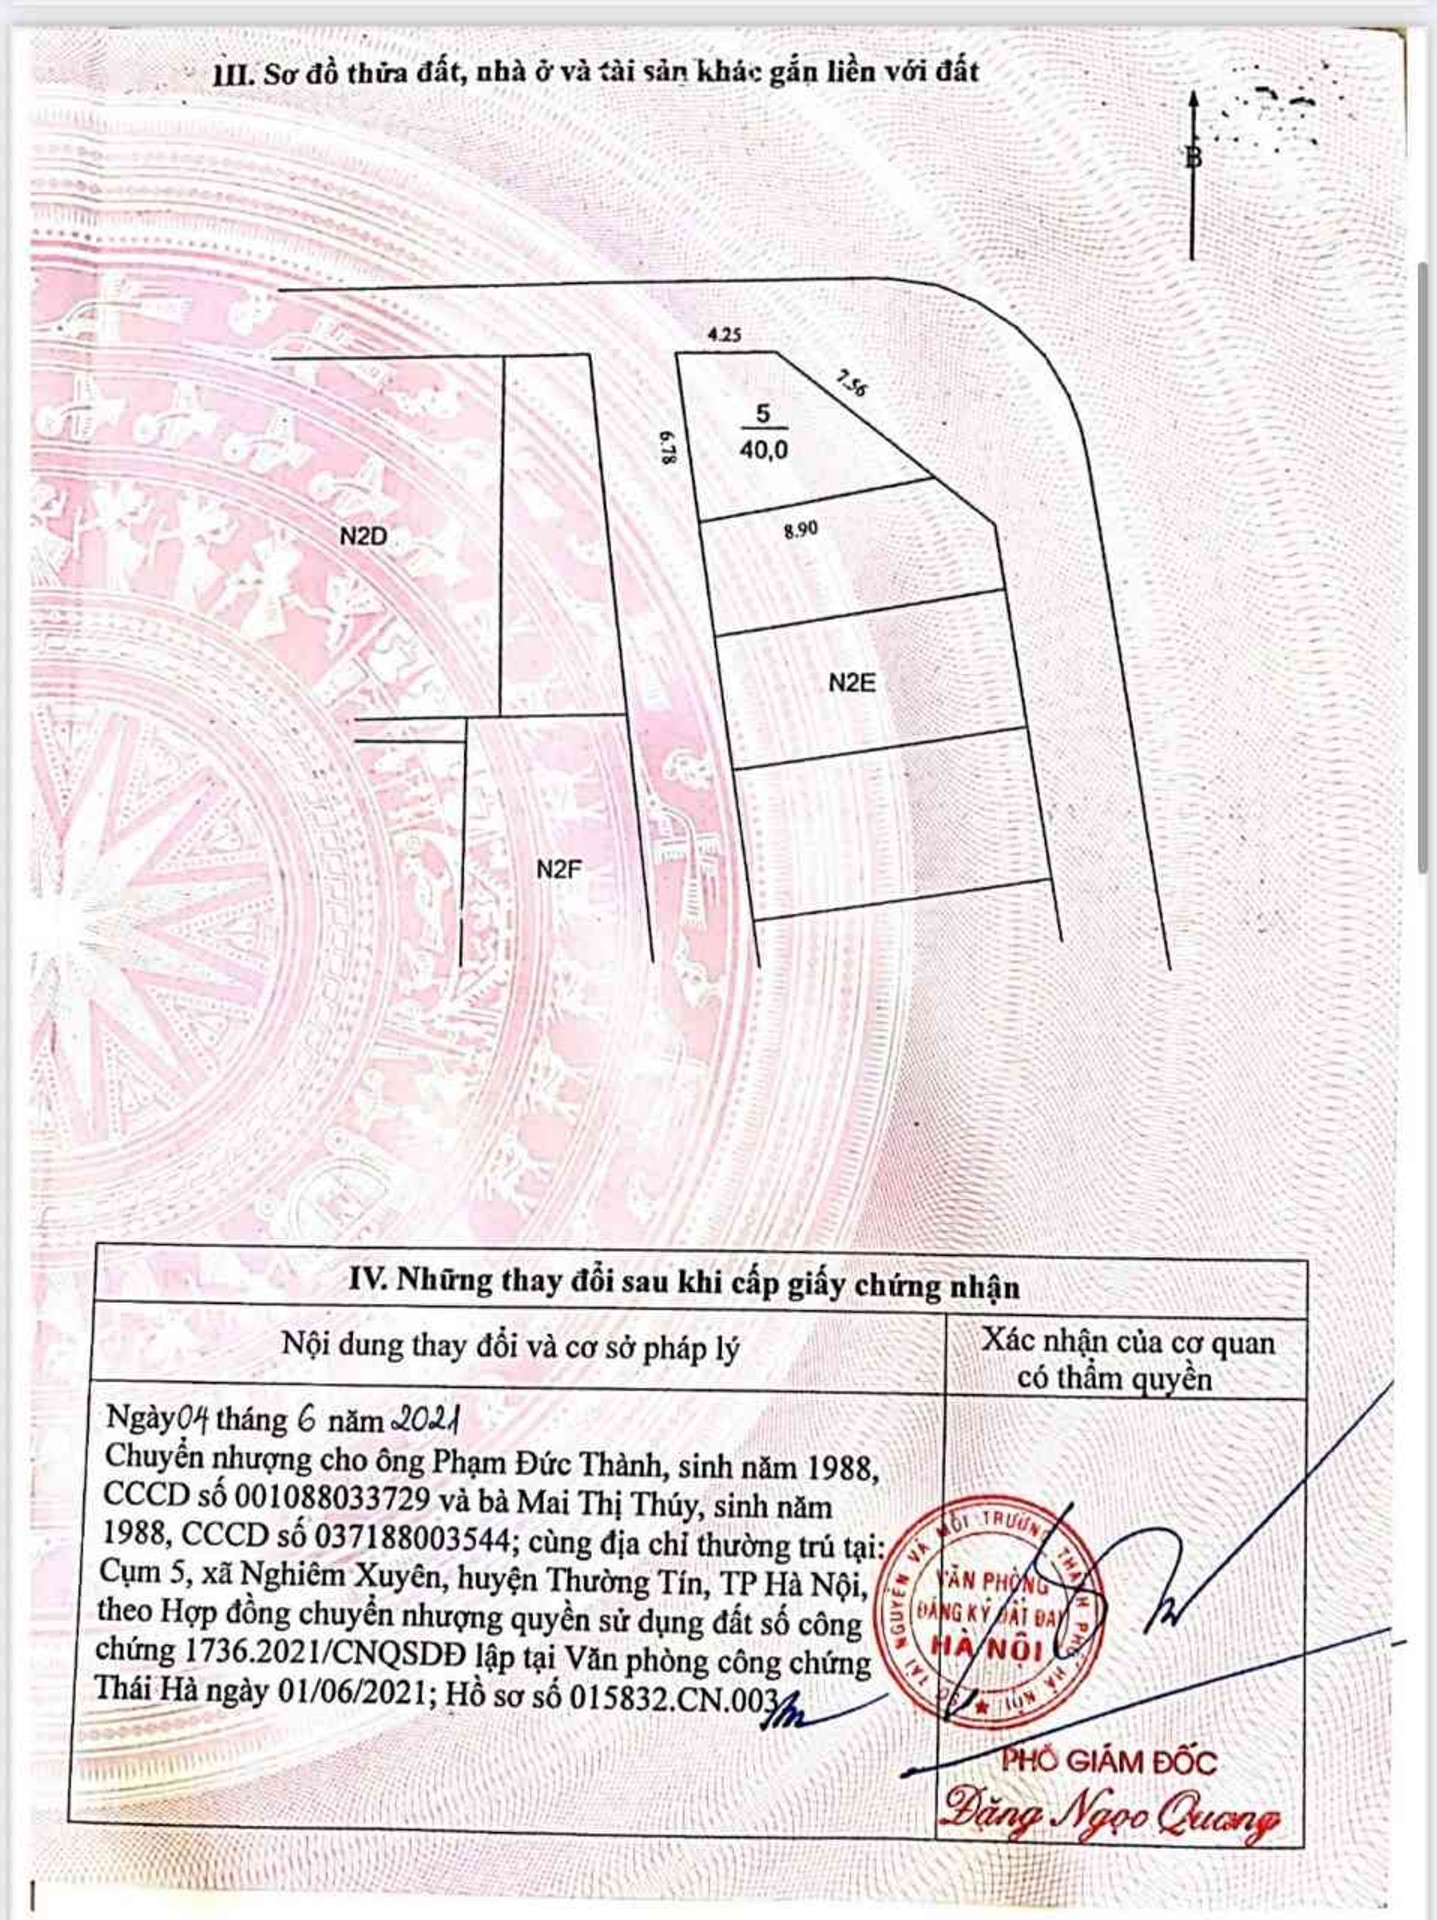 III. Sơ đồ thửa đất, nhà ở và tài sản khác gắn liền với đất
B
4.25
7.56
5
40,0
6.78
8.90
N2D
N2E
N2F
IV. Những thay đổi sau khi cấp giấy chứng nhận
Nội dung thay đổi và cơ sở pháp lý
Xác nhận của cơ quan
có thẩm quyền
Ngày 04 tháng 6 năm 2021
Chuyển nhượng cho ông Phạm Đức Thành, sinh năm 1988,
CCCD số 001088033729 và bà Mai Thị Thúy, sinh năm
1988, CCCD số 037188003544; cùng địa chỉ thường trú tại:
Cụm 5, xã Nghiêm Xuyên, huyện Thường Tín, TP Hà Nội,
theo Hợp đồng chuyển nhượng quyền sử dụng đất số công
chứng 1736.2021/CNQSDĐ lập tại Văn phòng công chứng
Thái Hà ngày 01/06/2021; Hồ sơ số 015832.CN.003
SỞ TÀI NGUYÊN VÀ MÔI TRƯỜNG THÀNH PHỐ HÀ NỘI
VĂN PHÒNG
ĐĂNG KÝ ĐẤT ĐAI
HÀ NỘI
PHÓ GIÁM ĐỐC
Đặng Ngọc Quang